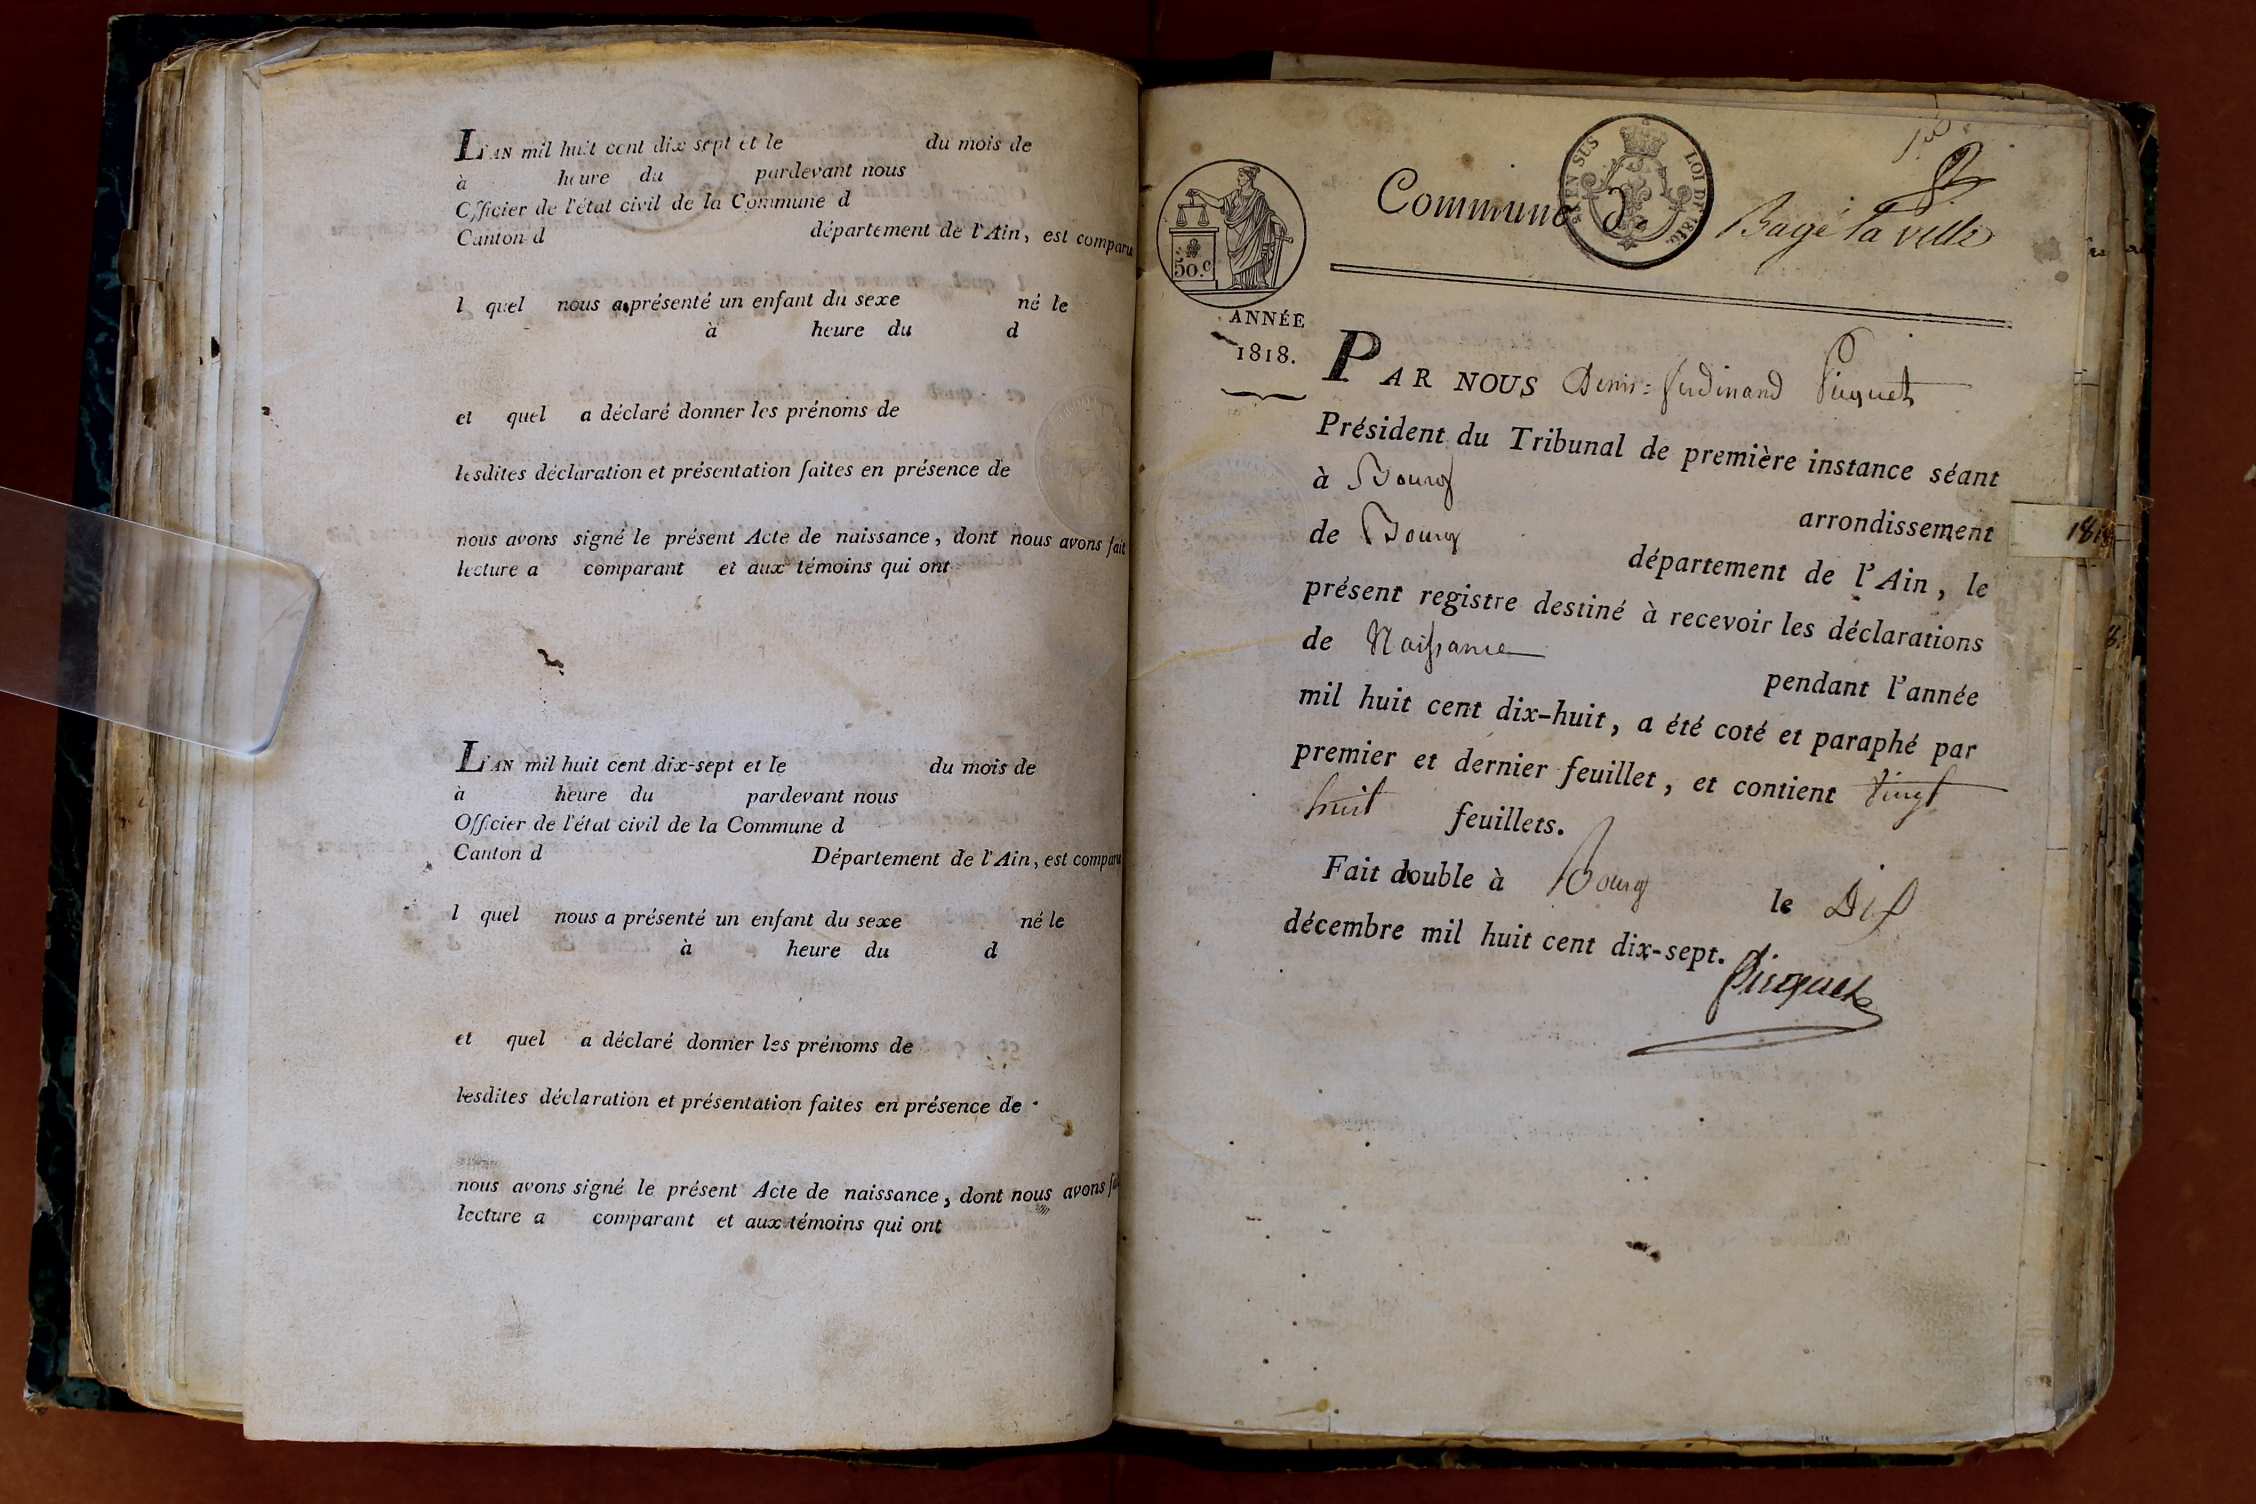 L'AN mil huit cent dix sept et le du mois de
à heure du pardevant nous
Officier de l'état civil de la Commune d
Canton d département de l'Ain, est comparu
l quel nous a présenté un enfant du sexe né le
à heure du d
et quel a déclaré donner les prénoms de
lesdites déclaration et présentation faites en présence de
nous avons signé le présent Acte de naissance, dont nous avons fait
lecture a comparant et aux témoins qui ont
L'AN mil huit cent dix-sept et le du mois de
à heure du pardevant nous
Officier de l'état civil de la Commune d
Canton d Département de l'Ain, est comparu
l quel nous a présenté un enfant du sexe né le
à heure du d
et quel a déclaré donner les prénoms de
lesdites déclaration et présentation faites en présence de
nous avons signé le présent Acte de naissance, dont nous avons
lecture a comparant et aux témoins qui ont
EN SUS LOI DE 1816
50.c
Commune de Bagé la ville
ANNÉE
1818.
PAR NOUS Denis=ferdinand Picquet
Président du Tribunal de première instance séant
à Bourg arrondissement
de Bourg département de l'Ain, le
présent registre destiné à recevoir les déclarations
de Naissance pendant l'année
mil huit cent dix-huit, a été coté et paraphé par
premier et dernier feuillet, et contient Vingt
huit feuillets.
Fait double à Bourg le Dix
décembre mil huit cent dix-sept.
Picquet